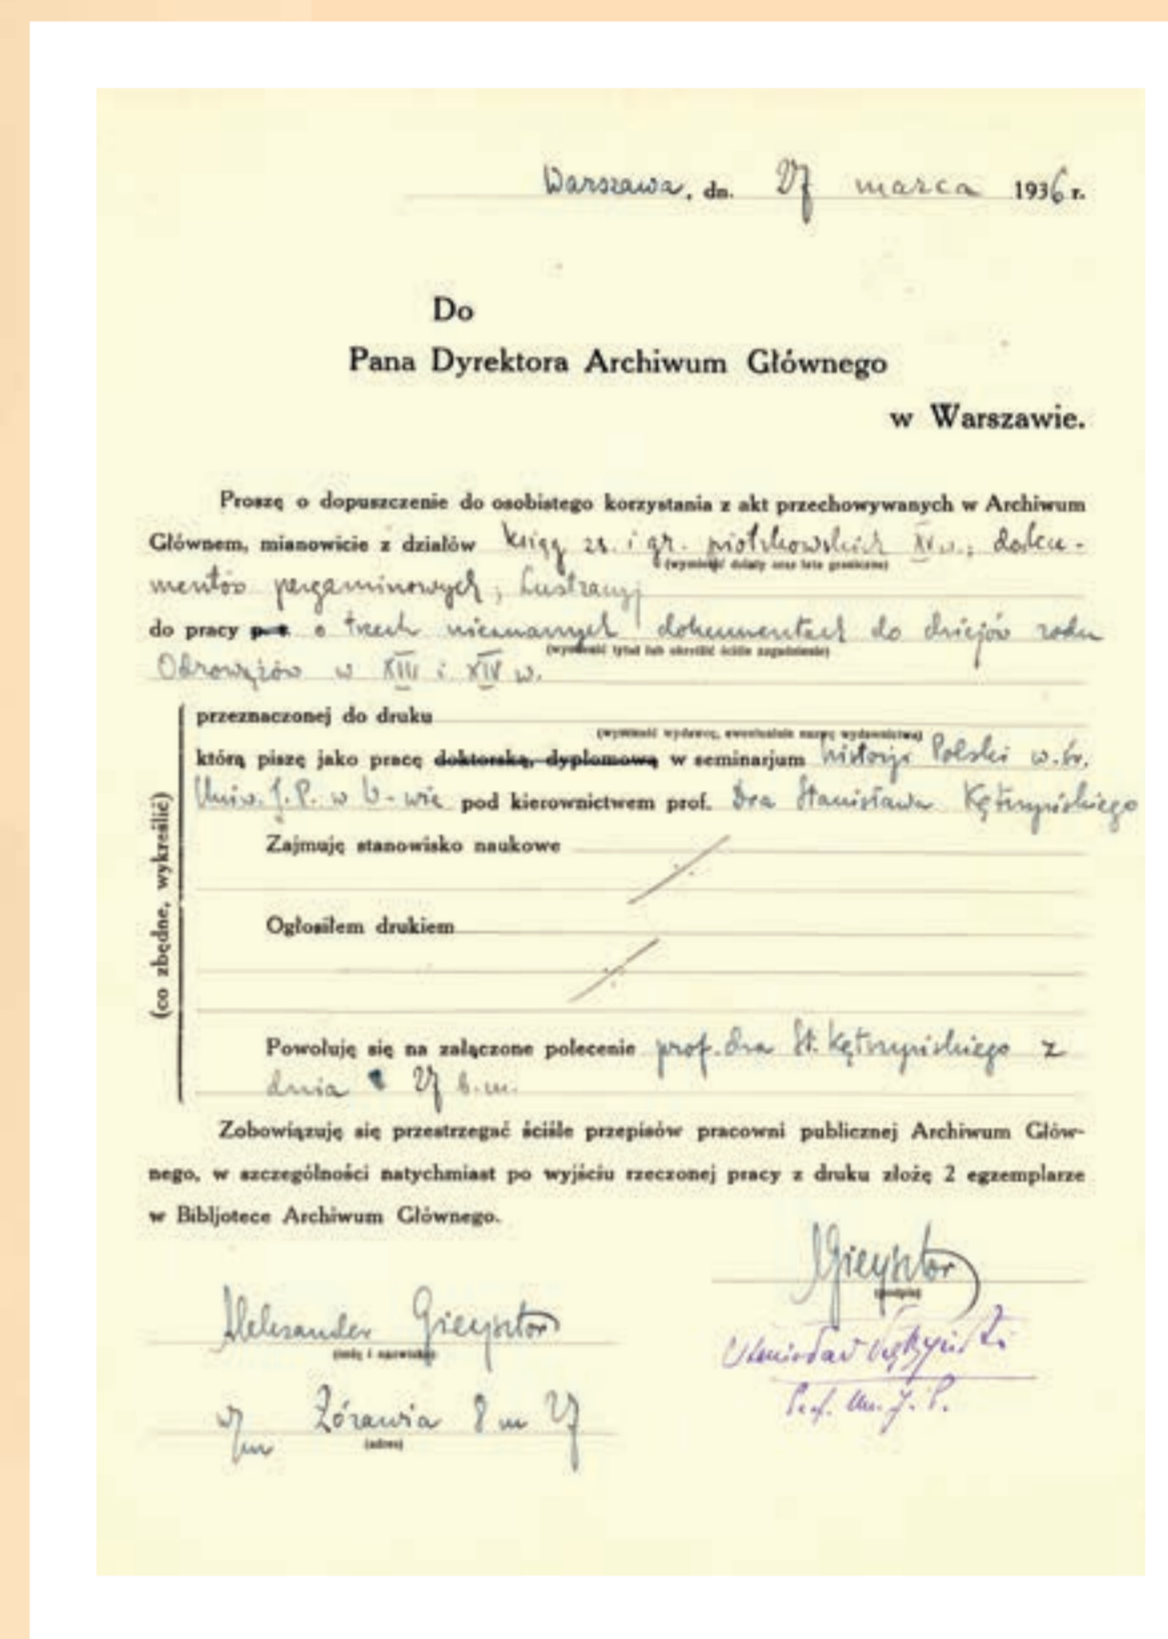 Warszawa, dn. 27 marca 1936 r.
Do
Pana Dyrektora Archiwum Głównego
w Warszawie.
Proszę o dopuszczenie do osobistego korzystania z akt przechowywanych w Archiwum
Głównem, mianowicie z działów ksiąg zs. i gr. piotrkowskich XV w., doku-
(wymienić działy oraz lata graniczne)
mentów pergaminowych, Lustracyj
do pracy p. t. o trzech nieznanych dokumentach do dziejów rodu
(wymienić tytuł lub określić ściśle zagadnienie)
Odrowążów w XIII i XIV w.
przeznaczonej do druku
(wymienić wydawcę, ewentualnie nazwę wydawnictwa)
którą piszę jako pracę doktorską, dyplomową w seminarjum historji Polski w. śr.
Uniw. J. P. w W-wie pod kierownictwem prof. Dra Stanisława Kętrzyńskiego
Zajmuję stanowisko naukowe
Ogłosiłem drukiem
Powołuję się na załączone polecenie prof. dra St. Kętrzyńskiego z
dnia 27 b. m.
(co zbędne, wykreślić)
Zobowiązuję się przestrzegać ściśle przepisów pracowni publicznej Archiwum Głów-
nego, w szczególności natychmiast po wyjściu rzeczonej pracy z druku złożę 2 egzemplarze
w Bibljotece Archiwum Głównego.
AGieysztor
(podpis)
Aleksander Gieysztor
(imię i nazwisko)
Stanisław Kętrzyński
Prof. Un. J. P.
w/m Żórawia 8 m 27
(adres)